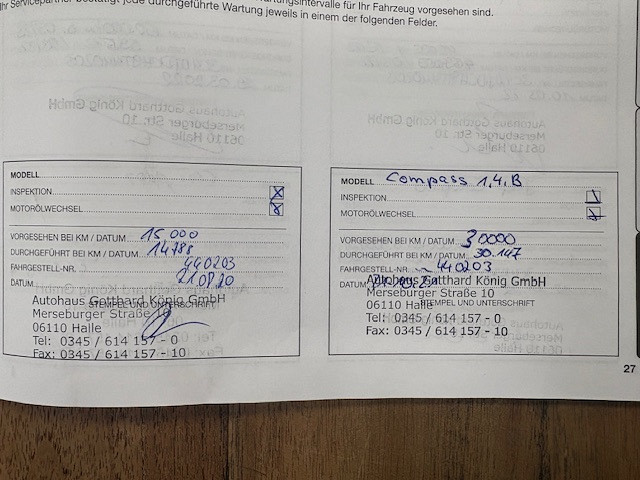 Ihr Servicepartner bestätigt jede durchgeführte Wartung jeweils in einem der folgenden Felder.
MODELL
INSPEKTION
MOTORÖLWECHSEL
VORGESEHEN BEI KM / DATUM 15 000
DURCHGEFÜHRT BEI KM / DATUM 14788
FAHRGESTELL-NR. 440203
DATUM 21.08.20
Autohaus Gotthard König GmbH
STEMPEL UND UNTERSCHRIFT
Merseburger Straße 10
06110 Halle
Tel: 0345 / 614 157 - 0
Fax: 0345 / 614 157 - 10
MODELL Compass 1,4, B
INSPEKTION
MOTORÖLWECHSEL
VORGESEHEN BEI KM / DATUM 30000
DURCHGEFÜHRT BEI KM / DATUM 30.147
FAHRGESTELL-NR. 440203
DATUM
Autohaus Gotthard König GmbH
Merseburger Straße 10
STEMPEL UND UNTERSCHRIFT
06110 Halle
Tel: 0345 / 614 157 - 0
Fax: 0345 / 614 157 - 10
27